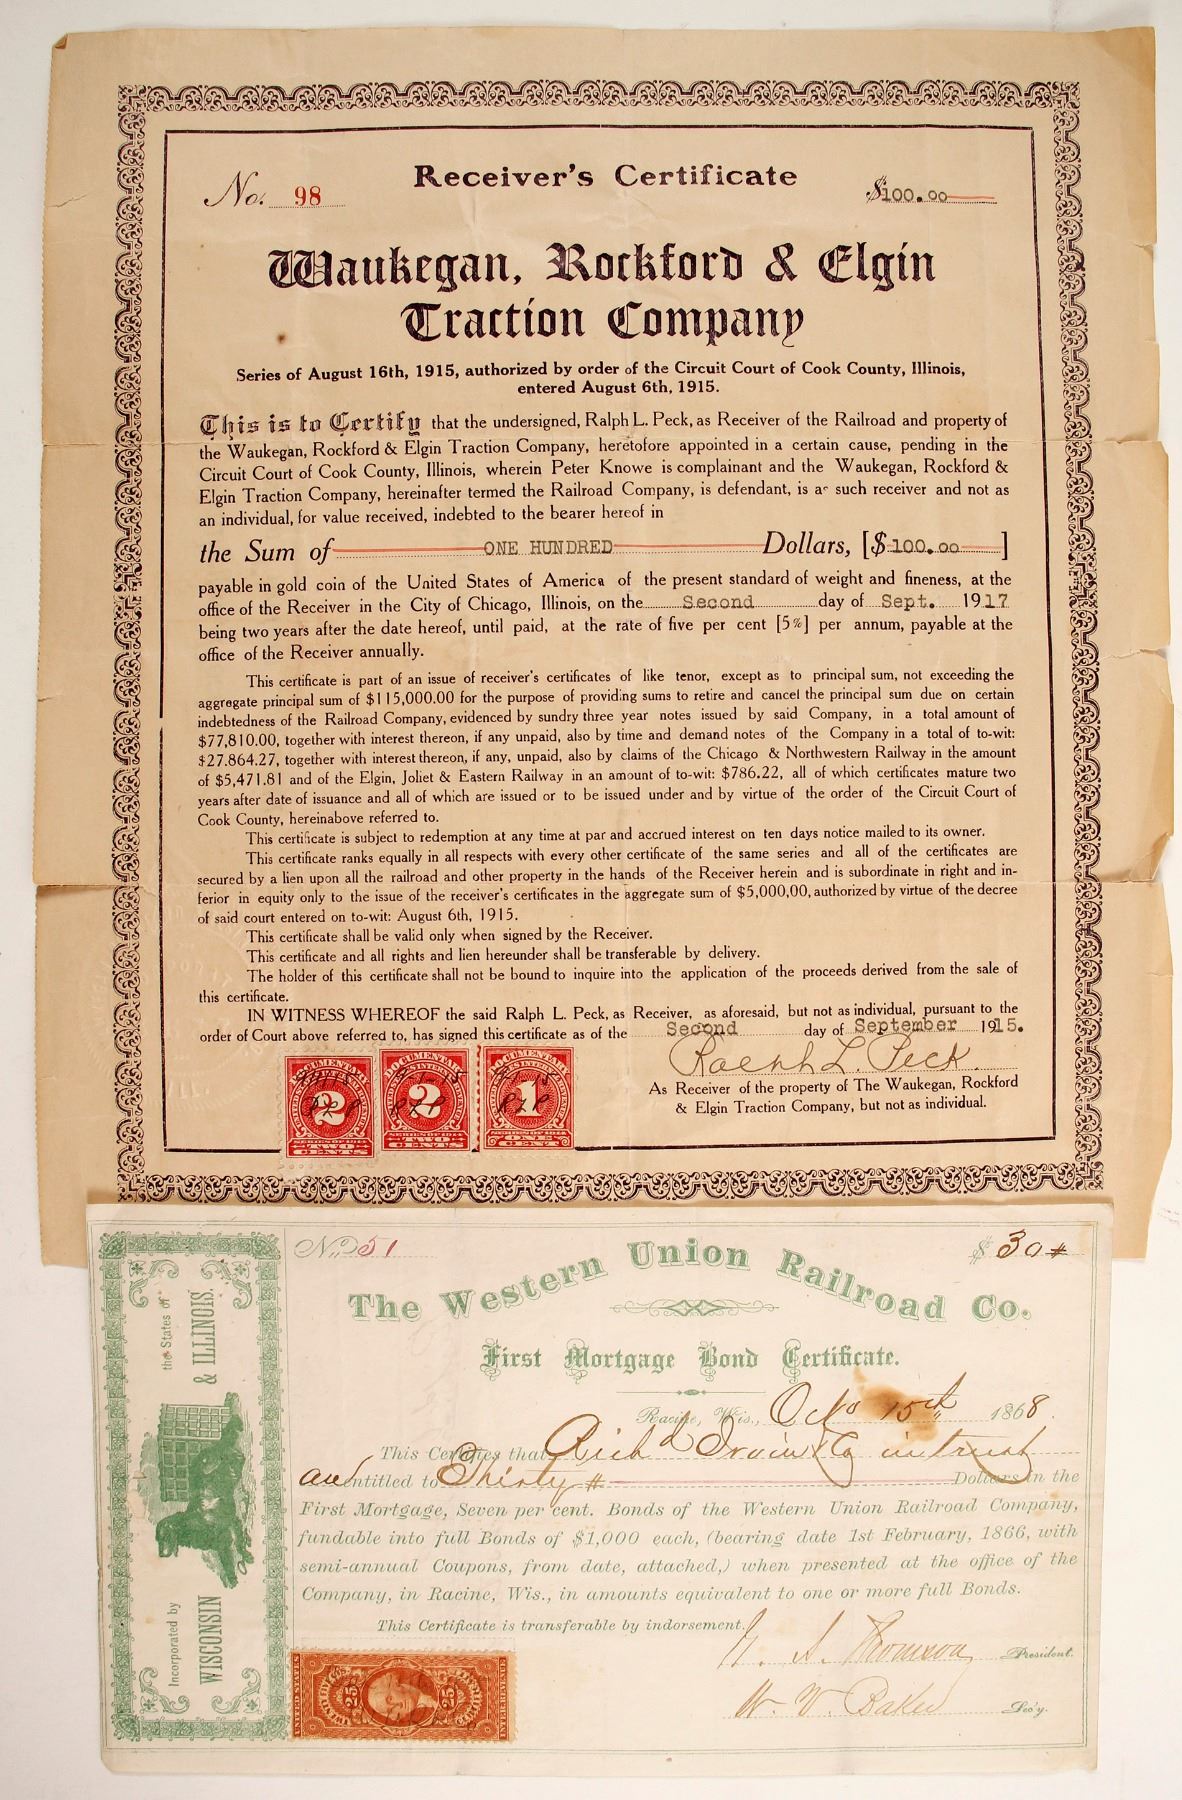 No. 98
Receiver's Certificate
$100.00
Waukegan, Rockford & Elgin
Traction Company
Series of August 16th, 1915, authorized by order of the Circuit Court of Cook County, Illinois,
entered August 6th, 1915.
This is to Certify that the undersigned, Ralph L. Peck, as Receiver of the Railroad and property of
the Waukegan, Rockford & Elgin Traction Company, heretofore appointed in a certain cause, pending in the
Circuit Court of Cook County, Illinois, wherein Peter Knowe is complainant and the Waukegan, Rockford &
Elgin Traction Company, hereinafter termed the Railroad Company, is defendant, is as such receiver and not as
an individual, for value received, indebted to the bearer hereof in
the Sum of ONE HUNDRED Dollars, [$100.00]
payable in gold coin of the United States of America of the present standard of weight and fineness, at the
office of the Receiver in the City of Chicago, Illinois, on the Second day of Sept. 1917
being two years after the date hereof, until paid, at the rate of five per cent [5%] per annum, payable at the
office of the Receiver annually.
This certificate is part of an issue of receiver's certificates of like tenor, except as to principal sum, not exceeding the
aggregate principal sum of $115,000.00 for the purpose of providing sums to retire and cancel the principal sum due on certain
indebtedness of the Railroad Company, evidenced by sundry three year notes issued by said Company, in a total amount of
$77,810.00, together with interest thereon, if any unpaid, also by time and demand notes of the Company in a total of to-wit:
$27.864.27, together with interest thereon, if any, unpaid, also by claims of the Chicago & Northwestern Railway in the amount
of $5,471.81 and of the Elgin, Joliet & Eastern Railway in an amount of to-wit: $786.22, all of which certificates mature two
years after date of issuance and all of which are issued or to be issued under and by virtue of the order of the Circuit Court of
Cook County, hereinabove referred to.
This certificate is subject to redemption at any time at par and accrued interest on ten days notice mailed to its owner.
This certificate ranks equally in all respects with every other certificate of the same series and all of the certificates are
secured by a lien upon all the railroad and other property in the hands of the Receiver herein and is subordinate in right and in-
ferior in equity only to the issue of the receiver's certificates in the aggregate sum of $5,000,00, authorized by virtue of the decree
of said court entered on to-wit: August 6th, 1915.
This certificate shall be valid only when signed by the Receiver.
This certificate and all rights and lien hereunder shall be transferable by delivery.
The holder of this certificate shall not be bound to inquire into the application of the proceeds derived from the sale of
this certificate.
IN WITNESS WHEREOF the said Ralph L. Peck, as Receiver, as aforesaid, but not as individual, pursuant to the
order of Court above referred to, has signed this certificate as of the Second day of September 1915.
Ralph L. Peck
As Receiver of the property of The Waukegan, Rockford
& Elgin Traction Company, but not as individual.
DOCUMENTARY 2 SERIES OF 1914 TWO CENTS
DOCUMENTARY 2 SERIES OF 1914 TWO CENTS
DOCUMENTARY 1 SERIES OF 1914 ONE CENT
RLP
RLP
RLP
No. 51
$30
The Western Union Railroad Co.
First Mortgage Bond Certificate.
Racine, Wis., Oct 15th 1868
This Certifies that Rich'd Irvin & Co in trust
are entitled to Thirty Dollars in the
First Mortgage, Seven per cent. Bonds of the Western Union Railroad Company,
fundable into full Bonds of $1,000 each, (bearing date 1st February, 1866, with
semi-annual Coupons, from date, attached,) when presented at the office of the
Company, in Racine, Wis., in amounts equivalent to one or more full Bonds.
This Certificate is transferable by indorsement.
President.
W. V. Baker Sec'y.
Incorporated by the States of
WISCONSIN & ILLINOIS.
UNITED STATES
25 25
INTER. REVENUE